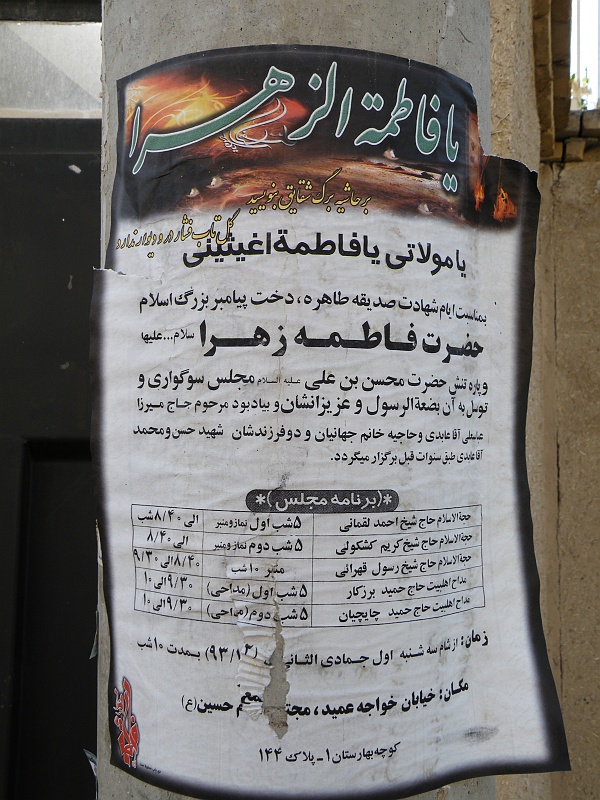 یا فاطمة الزهرا
بر حاشیه برگ شقایق بنویسید
گل تاب فشار در و دیوار ندارد
یا مولاتی یا فاطمة اغیثینی
بمناسبت ایام شهادت صدیقه طاهره ، دخت پیامبر بزرگ اسلام
حضرت فاطمه زهرا سلام...علیها
و پاره تنش حضرت محسن بن علی علیه السلام مجلس سوگواری و
توسل به آن بضعة الرسول و عزیزانشان و بیادبود مرحوم حاج میرزا
عباسعلی آقا عابدی و حاجیه خانم جهانیان و دو فرزندشان شهید حسن و محمد
آقا عابدی طبق سنوات قبل برگزار میگردد.
*(برنامه مجلس)*
حجةالاسلام حاج شیخ احمد لقمانی ۵ شب اول نماز و منبر الی ۸/۴۰ شب
حجةالاسلام حاج شیخ کریم کشکولی ۵ شب دوم نماز و منبر الی ۸/۴۰
حجةالاسلام حاج شیخ رسول قهرائی منبر ۱۰ شب ۸/۴۰ الی ۹/۳۰
مداح اهلبیت حاج حمید برزکار ۵ شب اول (مداحی) ۹/۳۰ الی ۱۰
مداح اهلبیت حاج حمید چایچیان ۵ شب دوم (مداحی) ۹/۳۰ الی ۱۰
زمان: از شام سه شنبه اول جمادی الثانی بمدت ۱۰ شب
مکان: خیابان خواجه عمید ، حسین(ع)
کوچه بهارستان ۱ - پلاک ۱۴۴